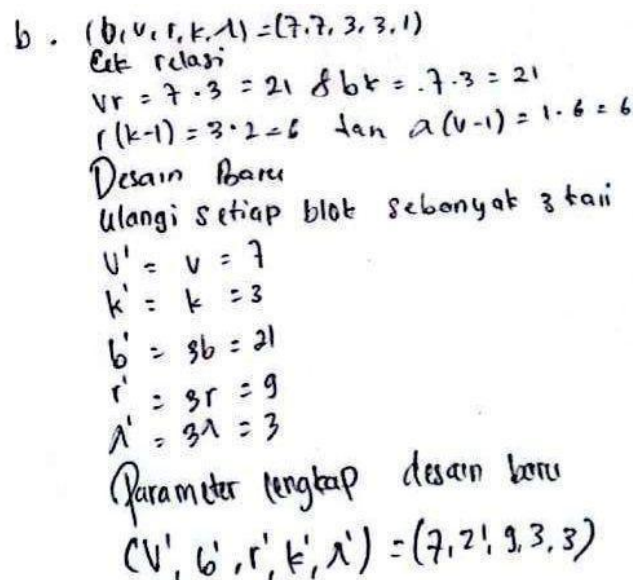 b. (b,v,r,k,λ) = (7,7,3,3,1)
Cek relasi
vr = 7 · 3 = 21 & bk = .7.3 = 21
r(k-1) = 3·2 = 6 dan λ(v-1) = 1·6 = 6
Desain Baru
Ulangi setiap blok sebanyak 3 kali
v' = v = 7
k' = k = 3
b' = 3b = 21
r' = 3r = 9
λ' = 3λ = 3
Parameter lengkap desain baru
(v', b', r', k', λ') = (7,21,9,3,3)